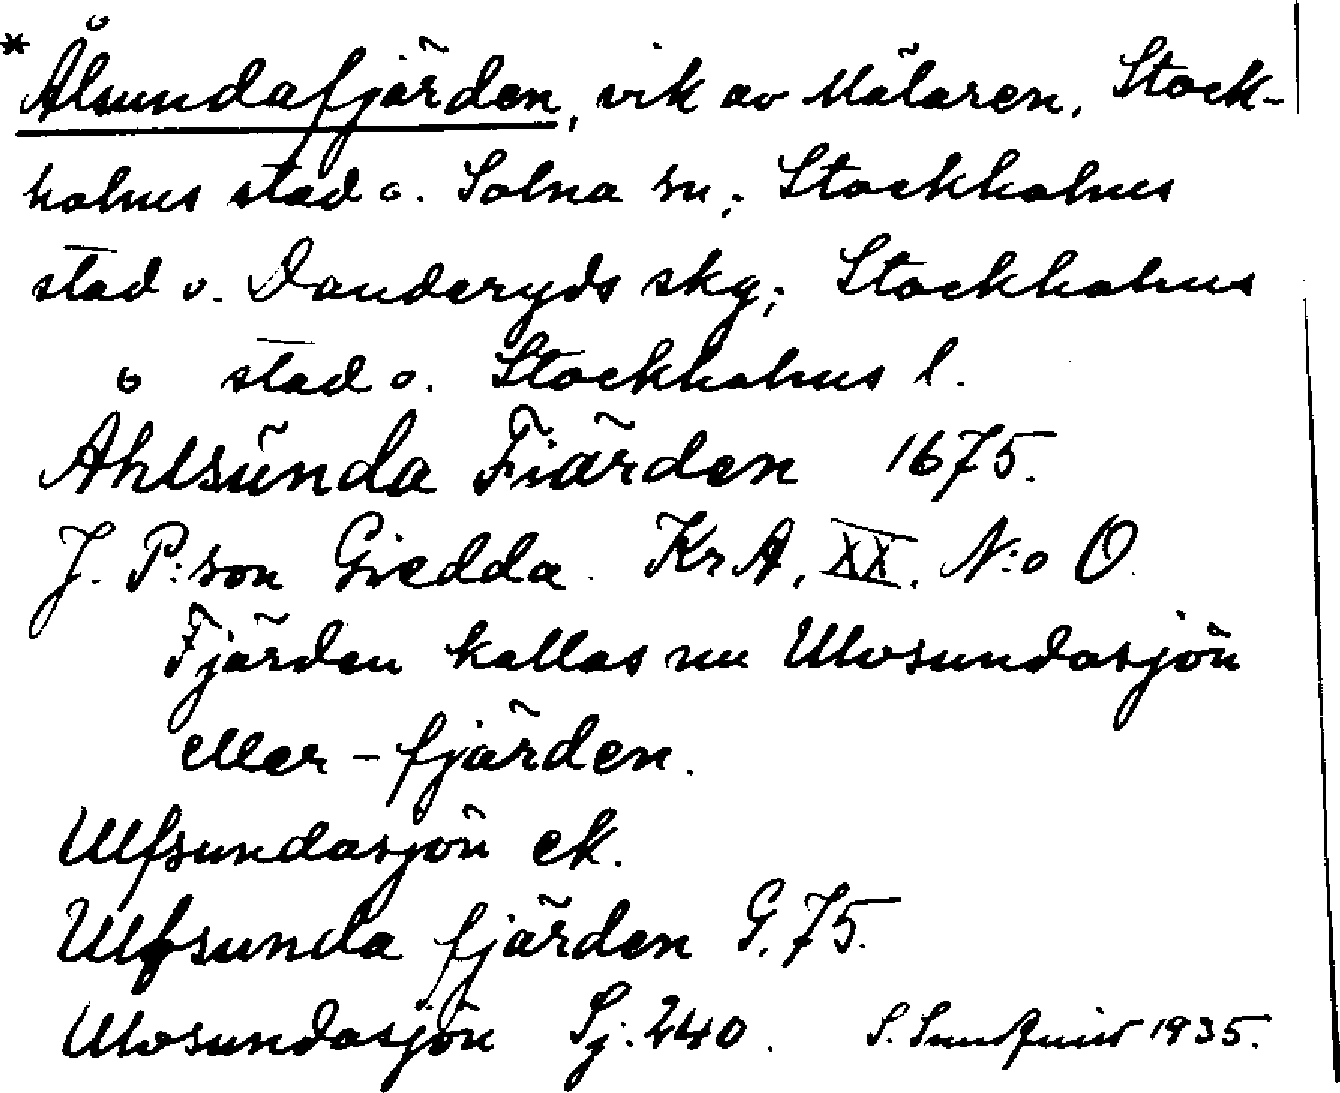 * Ålsundafjärden, vik av Mälaren, Stock-
holms stad o. Solna sn; Stockholms
stad o. Danderyds skg; Stockholms
stad o. Stockholms l.
Ahlsúnda Fiärden 1675.
J. P:son Giedda. KrA, XX. N:o O.
Fjärden kallas nu Ulvsundasjön
eller -fjärden.
Ulfsundasjön ek.
Ulfsunda fjärden G. 75.
Ulvsundasjön Sj. 240. S. Sundquist 1935.